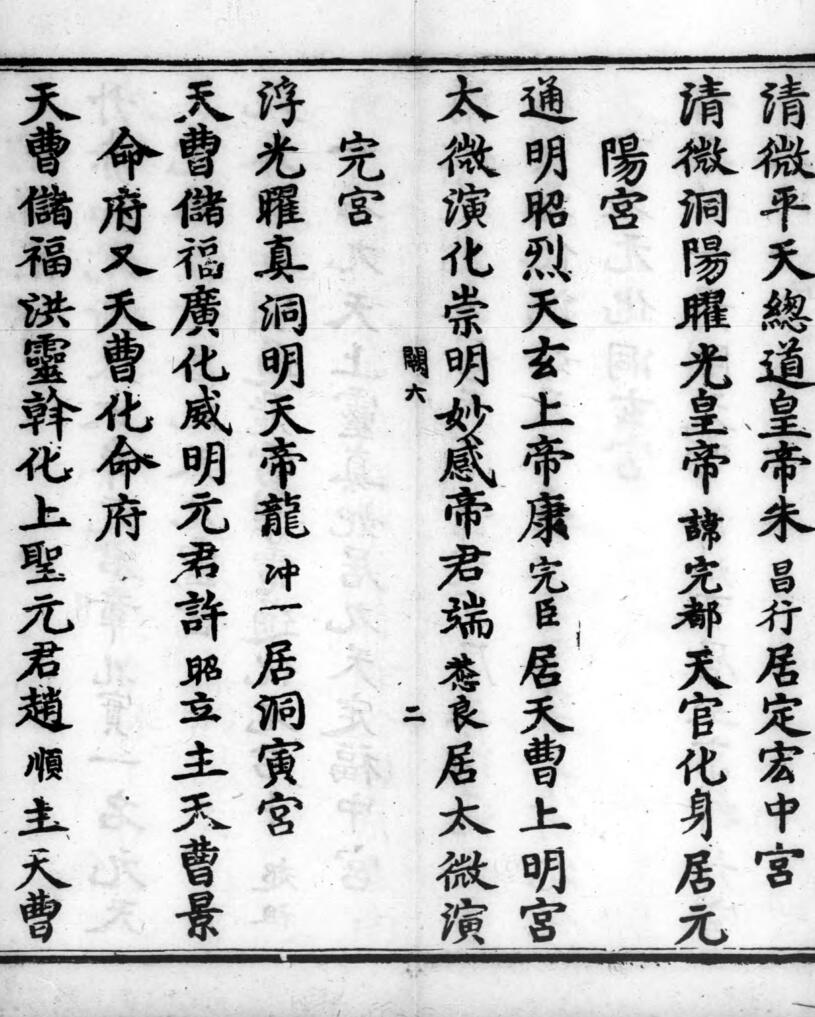 清微平天總道皇帝朱昌行居定宏中宮
清微洞陽曜光皇帝諱完都天官化身居元
陽宮
通明昭烈天玄上帝康完臣居天曹上明宮
太微演化崇明妙感帝君端慭良居太微演
闕六 二
完宮
浮光曜真洞明天帝龍冲一居洞寅宮
天曹儲福廣化威明元君許昭立主天曹景
命府又天曹化命府
天曹儲福洪靈幹化上聖元君趙順主天曹